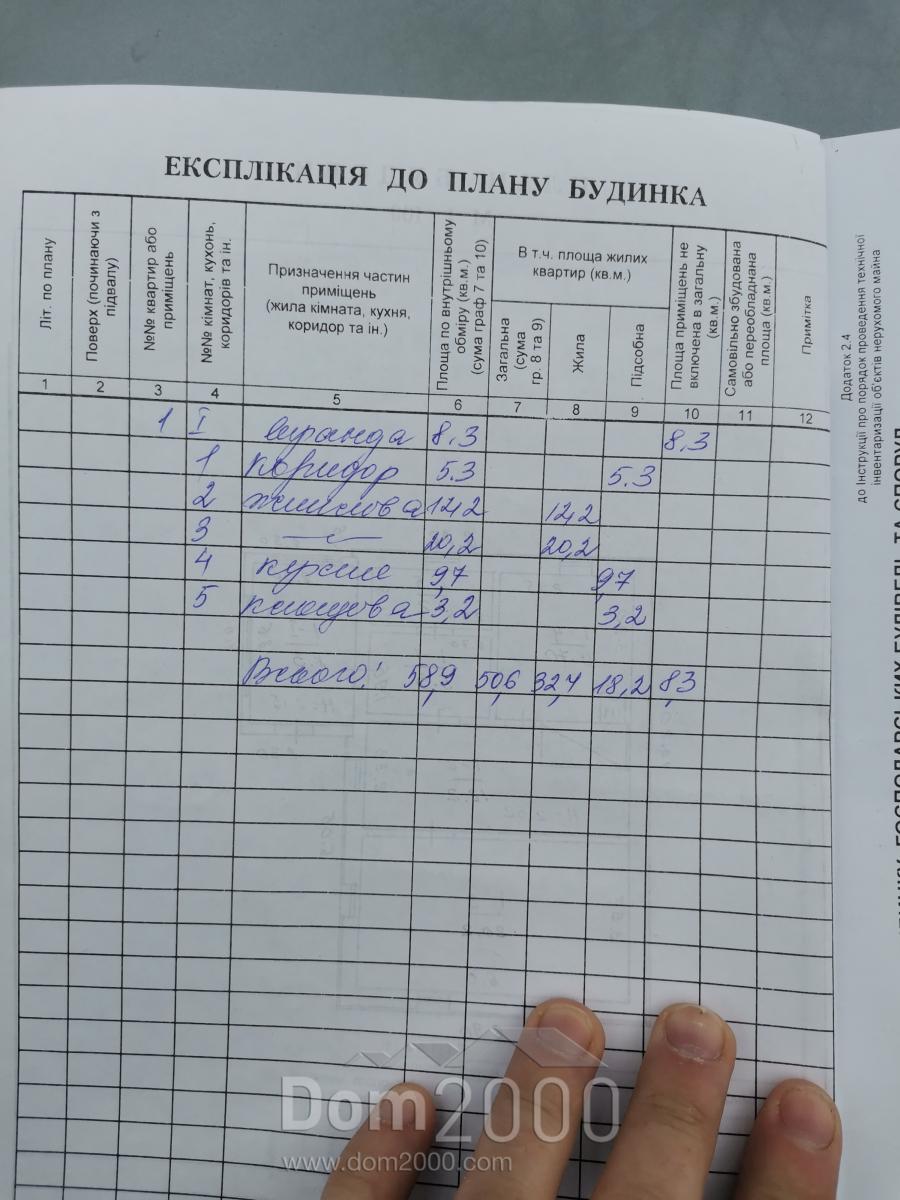 ЕКСПЛІКАЦІЯ ДО ПЛАНУ БУДИНКА
Літ. по плану
Поверх (починаючи з підвалу)
№№ квартир або приміщень
№№ кімнат, кухонь, коридорів та ін.
Призначення частин приміщень (жила кімната, кухня, коридор та ін.)
Площа по внутрішньому обміру (кв.м.) (сума граф 7 та 10)
В т.ч. площа жилих квартир (кв.м.)
Загальна (сума гр. 8 та 9)
Жила
Підсобна
Площа приміщень не включена в загальну (кв.м.)
Самовільно збудована або переобладнана площа (кв.м.)
Примітка
1 2 3 4 5 6 7 8 9 10 11 12
1 I веранда 8.3 8,3
1 коридор 5.3 5.3
2 житлова 12,2 12,2
3 —〃— 20,2 20,2
4 кухня 9,7 9,7
5 кладова 3,2 3,2
Всього: 58,9 50,6 32,4 18,2 8,3
Додаток 2.4
до Інструкції про порядок проведення технічної
інвентаризації об'єктів нерухомого майна
ГОСПОДАРСЬКИХ БУДІВЕЛЬ ТА СПОРУД
Dom2000
www.dom2000.com